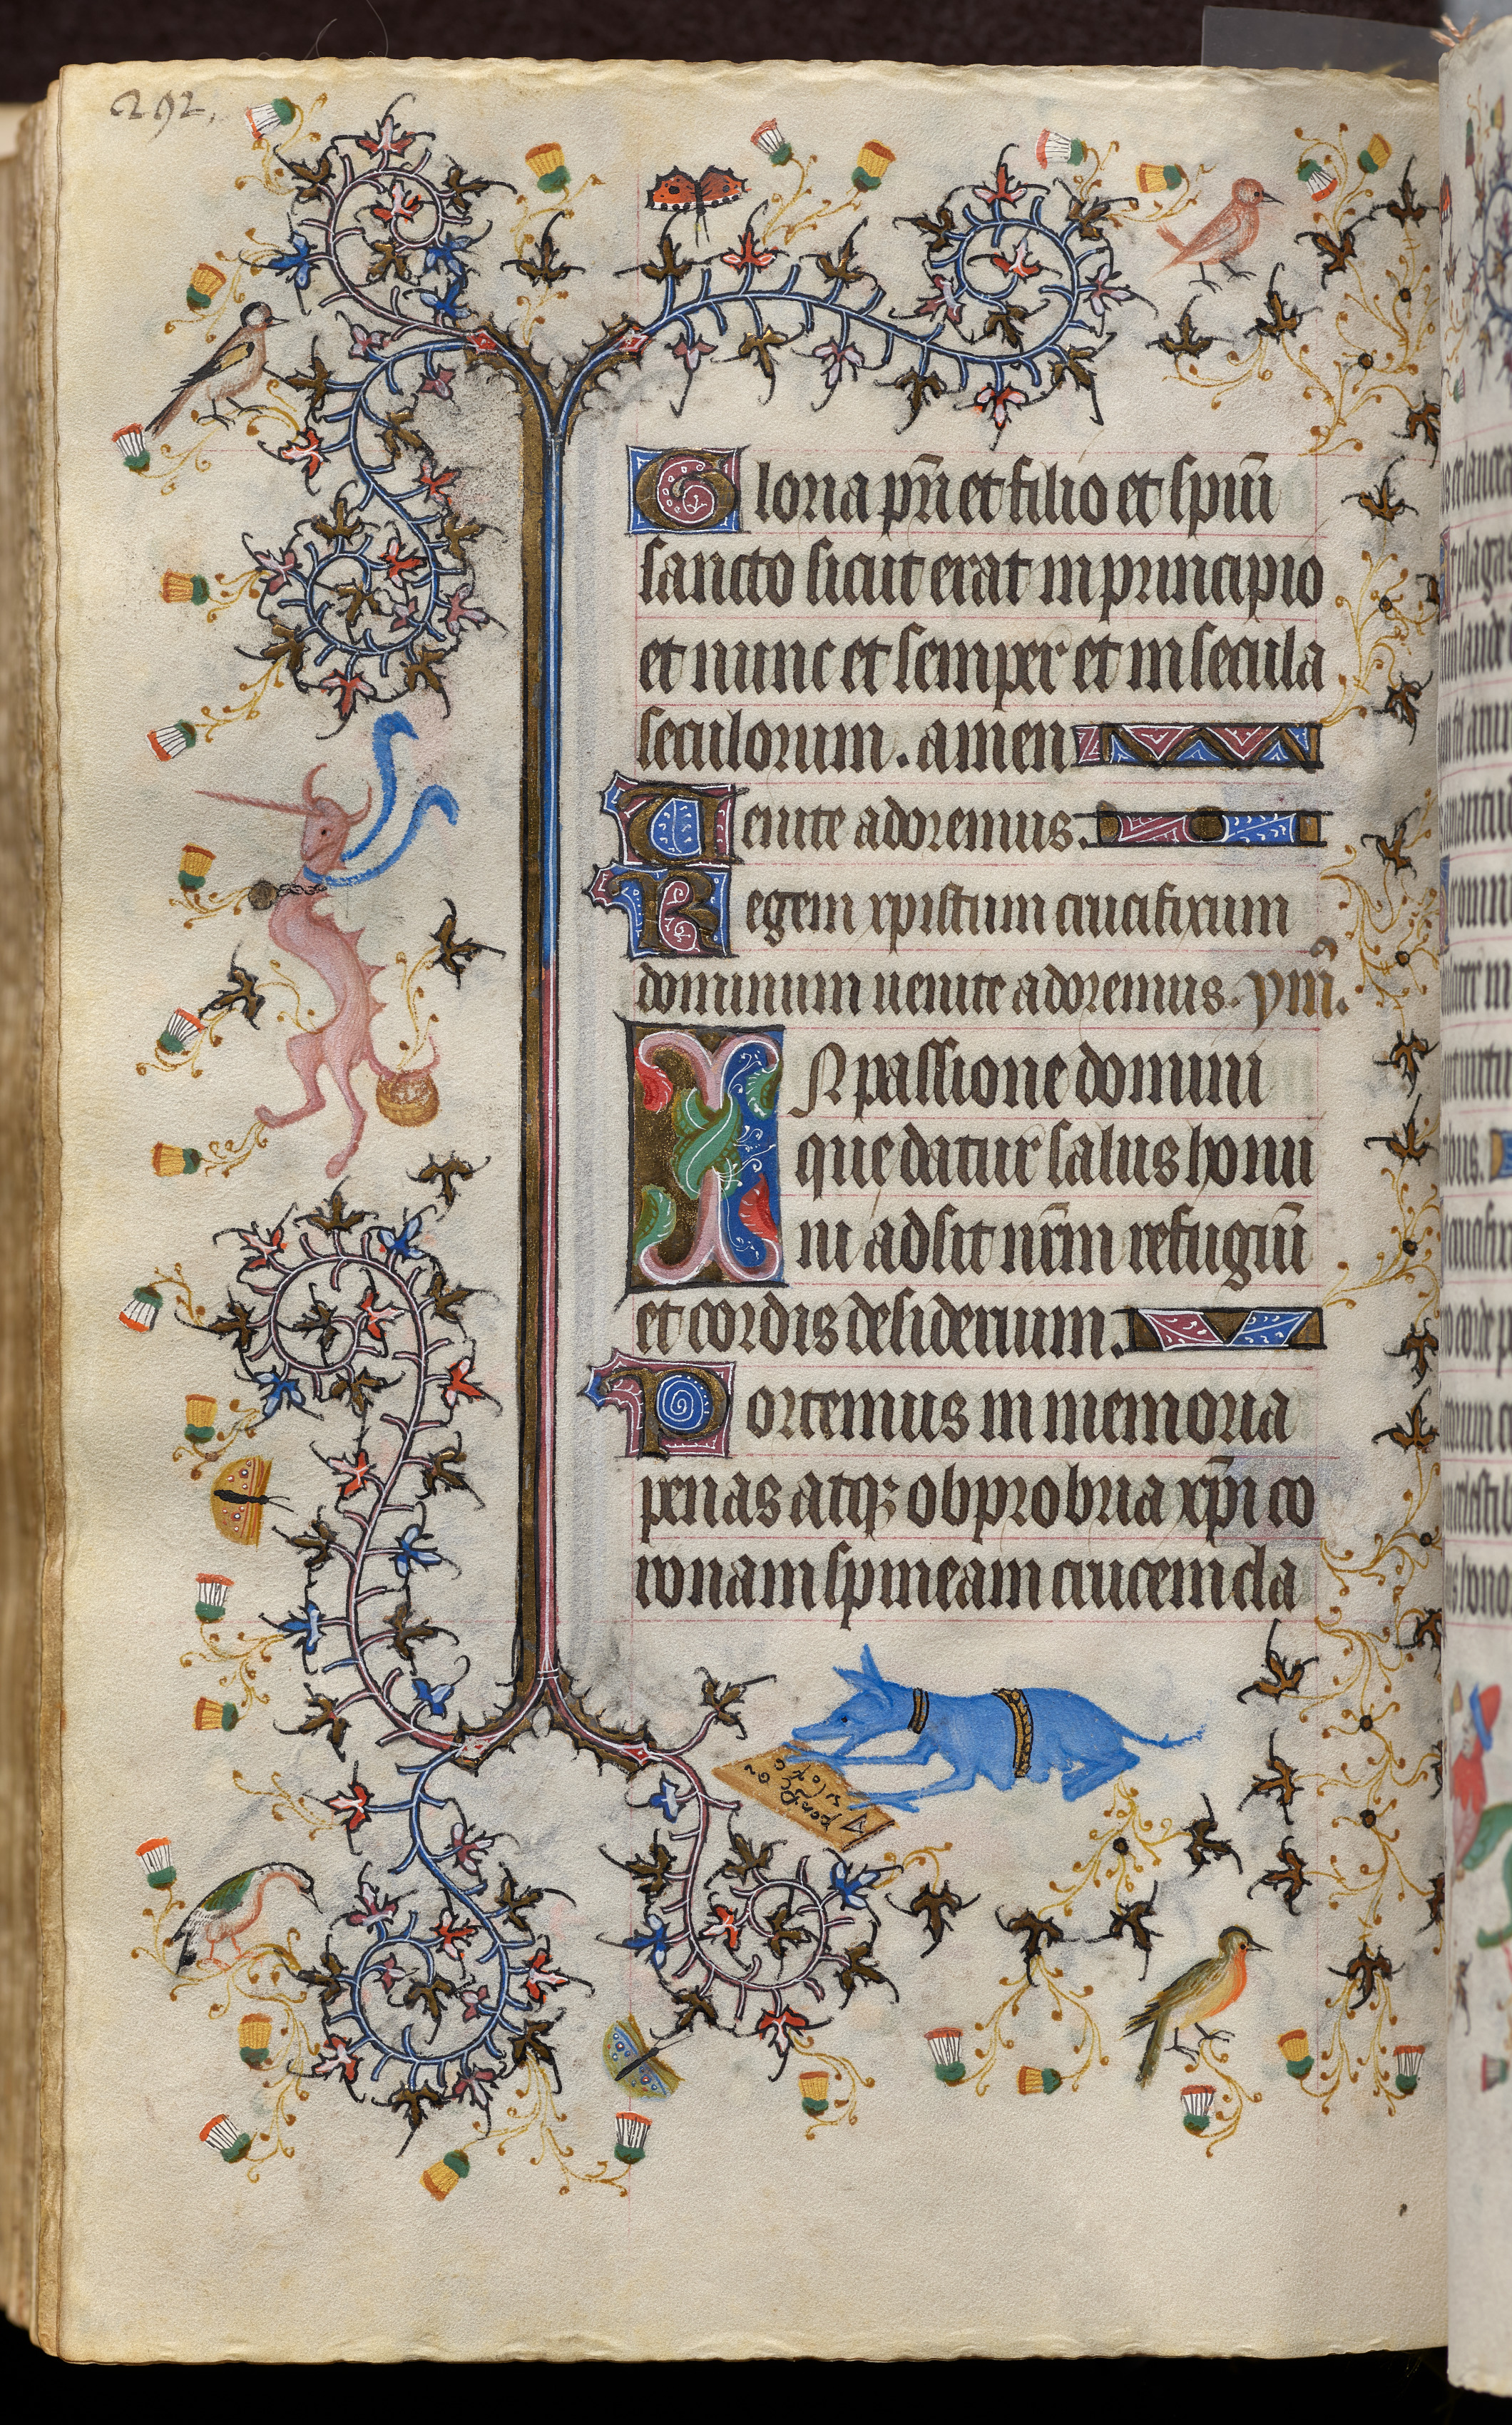 292.
Gloria pr̄i et filio et spiūi
sancto sicut erat in principio
et nunc et semper et in secula
seculorum. amen
Uenite adoremus.
Regem xpistum crucifixum
dominum uenite adoremus. ym̄.
IN passione domini
que datur salus homi
ni adsit nr̄m refugiū
et cordis desiderium.
Portemus in memoria
penas atqꝫ obprobria xp̄i co
ronam spineam crucem cla